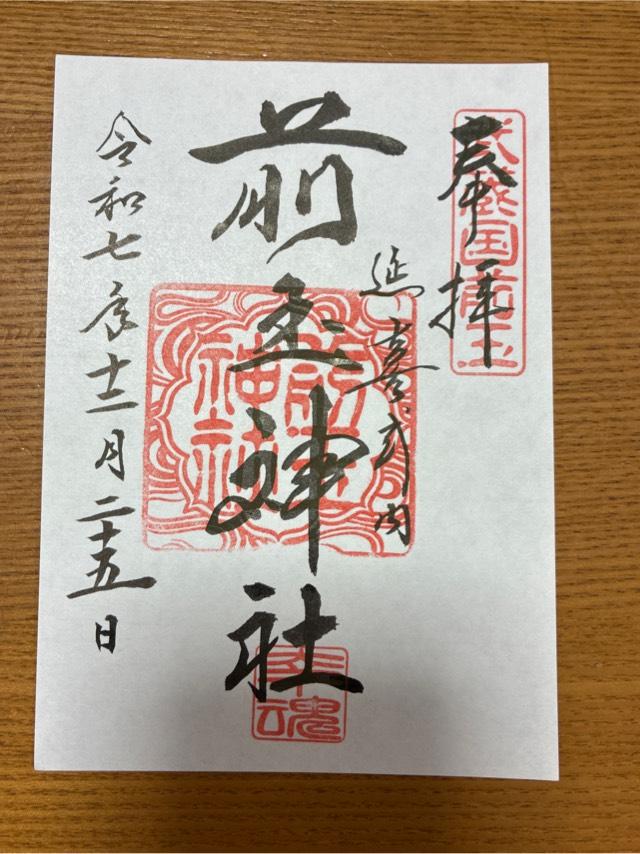 奉拝
武蔵国前玉
延喜式内
前玉神社
前玉神社
幸魂
令和七年十二月二十五日